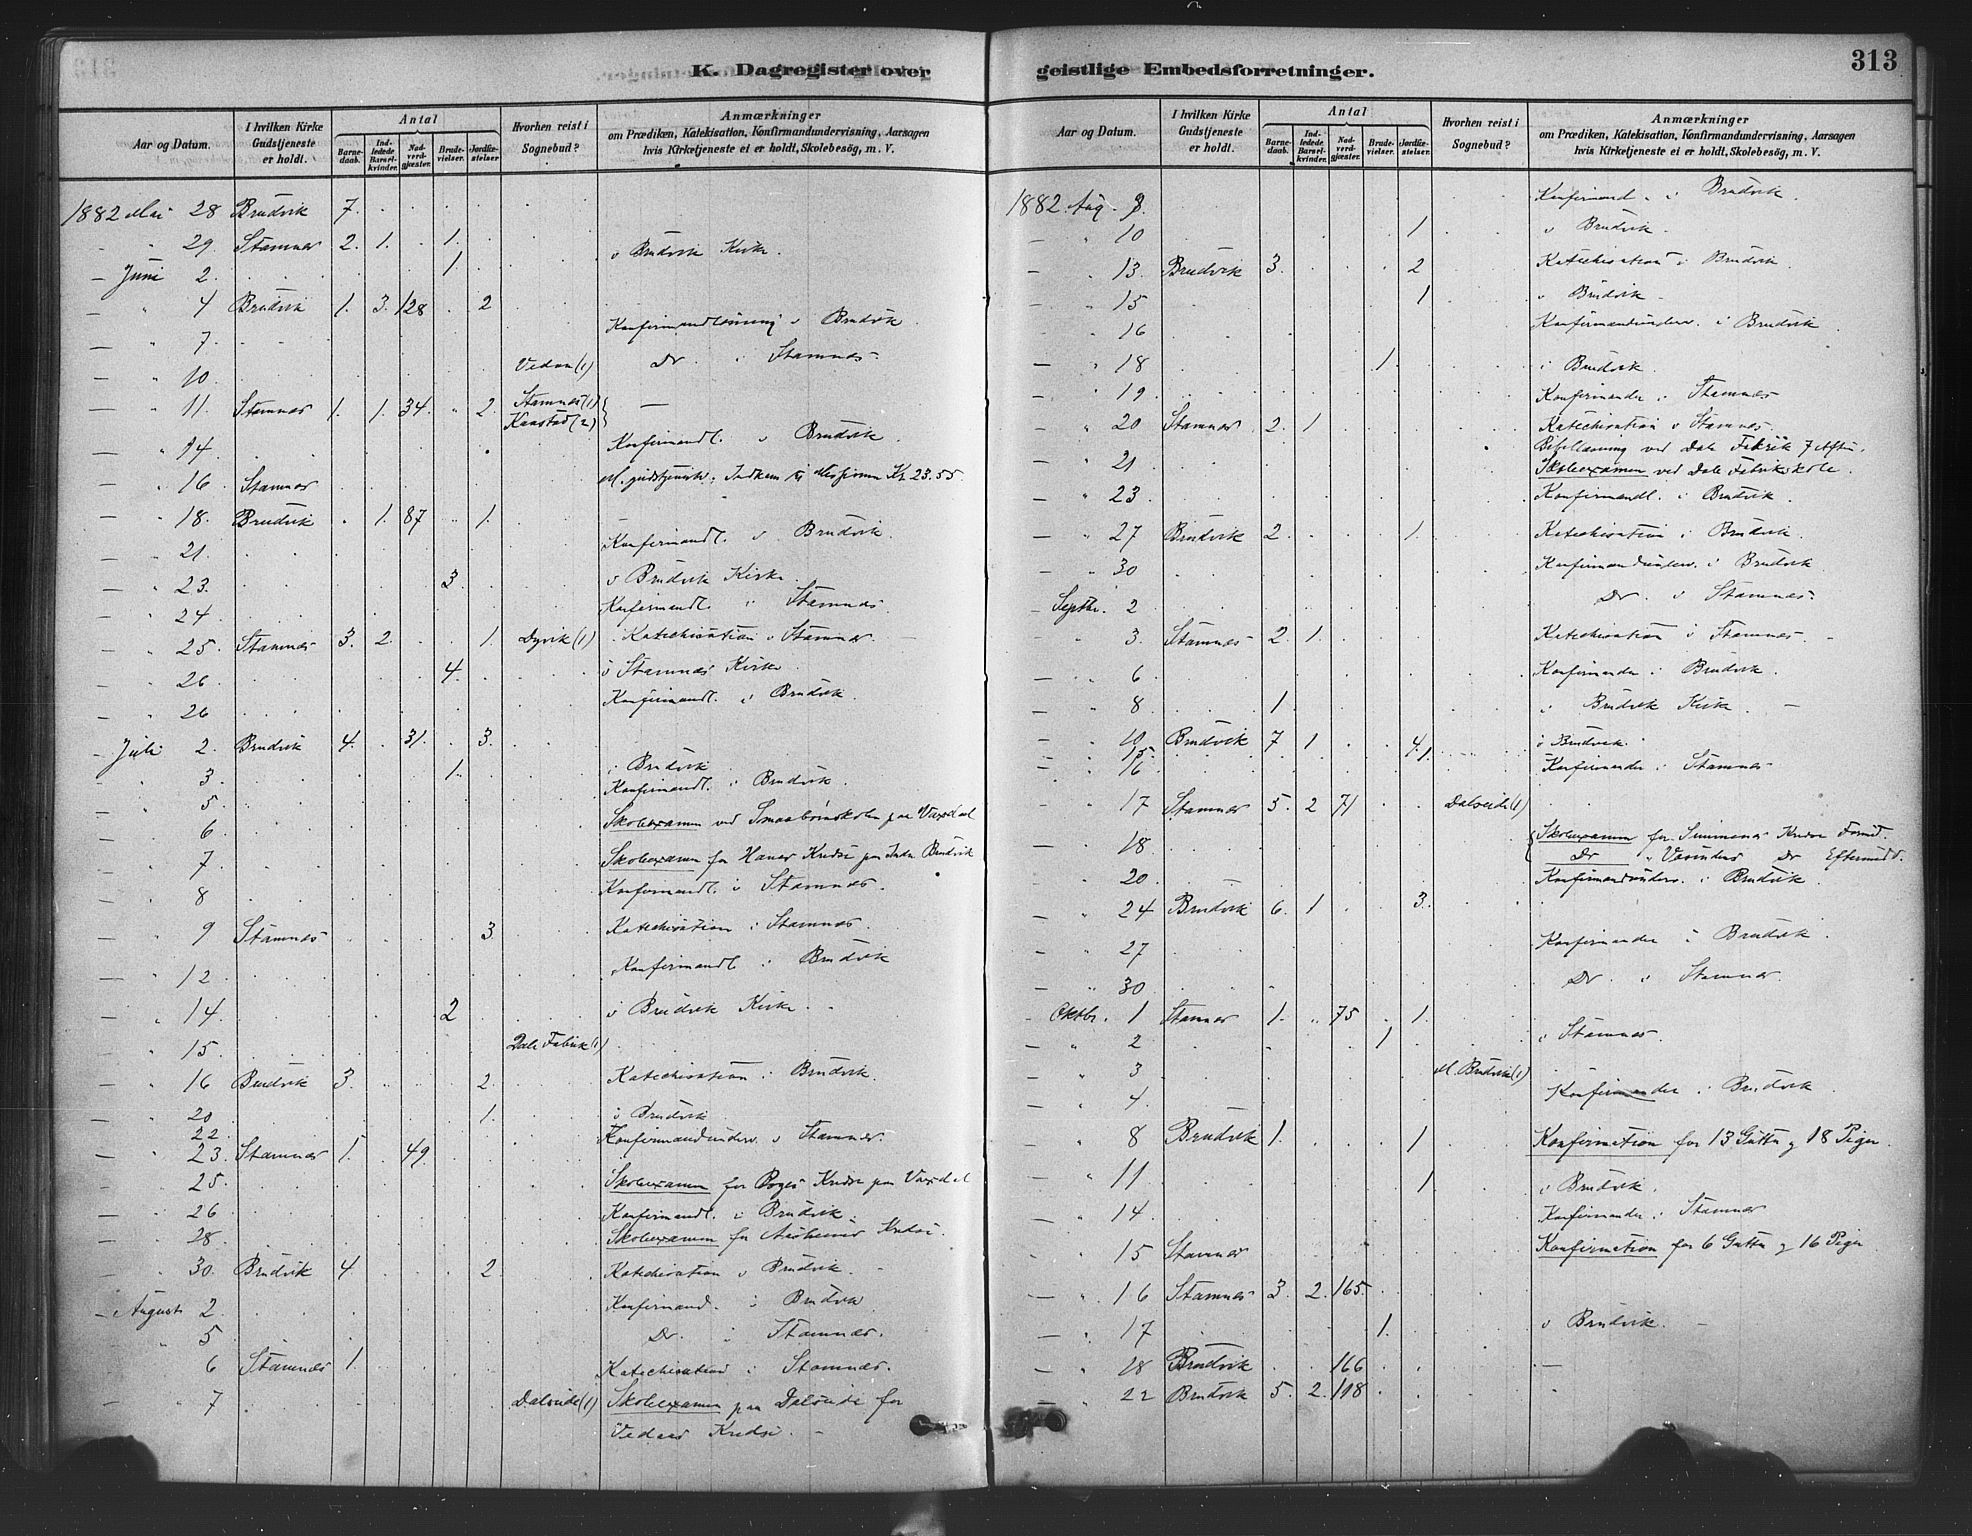 K. Dagregister over
Aar og Datum. | I hvilken Kirke Gudstjeneste er holdt. | Antal | Barnedaab. | Indledede Barselkvinder. | Nadverdgjæster. | Brudevielser. | Jordfæstelser | Hvorhen reist i Sognebud? | Anmærkninger om Prædiken, Katekisation, Konfirmandundervisning, Aarsagen hvis Kirketjeneste ei er holdt, Skolebesög, m. V.
1882 Mai 28 Brudvik 7.
" 29 Stamnes 2. 1. 1. i Brudvik Kirke.
- Juni 2 1
" 4 Brudvik 1. 3. 128 2
— " 7. Konfirmandlæsning i Brudvik
— " 10. Vedaa (1) Do i Stamnes
— " 11. Stamnes 1. 1. 34. " 2. Stamnes (1) —
— " 14 Konfirmandl. i Brudvik.
— " 16 Stamnes Kr. 23.55
— " 18. Brudvik 1. 87 1.
— " 21. Konfirmandl. i Brudvik
— " 23. 3 i Brudvik Kirke
— " 24 Konfirmandl. i Stamnes
— " 25 Stamnes 3. 2. 1. Dyvik (1) Katechisation i Stamnes
— " 26 4. i Stamnes Kirke
— " 26 Konfirmandl. i Brudvik
- Juli 2. Brudvik 4. 31. 3.
— " 3 1. i Brudvik
" 5 Konfirmandl. i Brudvik
" 6 Skoleexamen ved Smaabørnskolen paa Vaxdal
" 7 Skoleexamen for Hanes Kreds paa Indre Brudvik
— " 8 Konfirmandl. i Stamnes.
" 9 Stamnes 3 Katechisation i Stamnes
— " 12 Konfirmandl. i Brudvik
— " 14 2 i Brudvik Kirke
" 15. Dale Fabrik (1)
— " 16 Brudvik 3. 2. Katechisation i Brudvik.
— " 20 1. i Brudvik
— 22. Konfirmandunderv. i Stamnes.
— " 23. Stamnes 1. 49.
— " 25. Skoleexamen for Kreds paa Vaxdal
— " 26 Konfirmandl. i Brudvik.
— 28. Skoleexamen for Kreds.
— " 30. Brudvik 4 2 Katechisation i Brudvik.
- August 2 Konfirmand. i Brudvik
" 5 Do. i Stamnes.
" 6 Stamnes 1. Katechisation i Stamnes.
" 7 Dalseide (1) Skoleexamen paa Dalseide for
Vedaas Kreds.
geistlige Embedsforretninger. 313
Aar og Datum. | I hvilken Kirke Gudstjeneste er holdt. | Antal | Barnedaab. | Indledede Barselkvinder. | Nadverdgjæster. | Brudevielser. | Jordfæstelser. | Hvorhen reist i Sognebud? | Anmærkninger om Prædiken, Katekisation, Konfirmandundervisning, Aarsagen hvis Kirketjeneste ei er holdt, Skolebesög, m. V.
1882. Aug. Konfirmand. i Brudvik
— " 10 1 i Brudvik
— " 13. Brudvik 3. 2 Katechisation i Brudvik
— " 15 1 i Brudvik
— " 16 Konfirmandunderv. i Brudvik
— " 18 1. i Brudvik.
" 19. Konfirmander i Stamnes
— " 20 Stamnes 2. 1 Katechisation i Stamnes.
— " 21 Bibellæsning ved Dale Fabrik 7 Aften.
Skoleexamen ved Dale Fabrikskole.
— " 23 Konfirmandl. i Brudvik.
— " 27 Brudvik 2. 1. Katechisation i Brudvik.
— " 30 Konfirmandunderv. i Brudvik
- Septbr. 2 Do. i Stamnes.
" 3. Stamnes 2. 1. Katechisation i Stamnes.
— " 6 Konfirmander i Brudvik.
— " 8 1 i Brudvik Kirke. —
— " 10 Brudvik 7 1 4.
— 15. 1. i Brudvik
— " 16 Konfirmander i Stamnes
" 17 Stamnes 5. 2 71 Dalseide (1)
— " 18 Skoleexamen for Kreds Formid.
Do " Do Eftermidd.
— " 20 Konfirmandunderv. i Brudvik.
— " 24 Brudvik 6. 1 3.
— " 27 Konfirmander i Brudvik.
— " 30 Do i Stamnes
- Oktbr. 1 Stamnes 1. " 75 1.
— " 2 1 i Stamnes.
— " 3 M. Brudvik (1)
— " 4 Konfirmander i Brudvik
" 8 Brudvik 1. 1 Konfirmation for 13 Gutter og 18 Piger.
— " 11 1 i Brudvik.
— " 14 Konfirmander i Stamnes
" 15 Stamnes Konfirmation for 6 Gutter og 16 Piger
— " 16 Stamnes 3 2. 165.
— " 17 1. i Brudvik. —
— Brudvik 166 —
— " 22 Brudvik 5. 2. 118 —